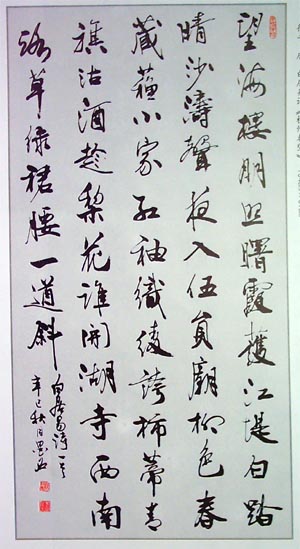 望海楼明照曙霞護江堤白踏
晴沙濤聲夜入伍員廟柳色春
藏蘇小家紅袖織綾誇柿蒂青
旗沽酒趁梨花誰開湖寺西南
路草綠裙腰一道斜
白居易詩一
辛巳秋月